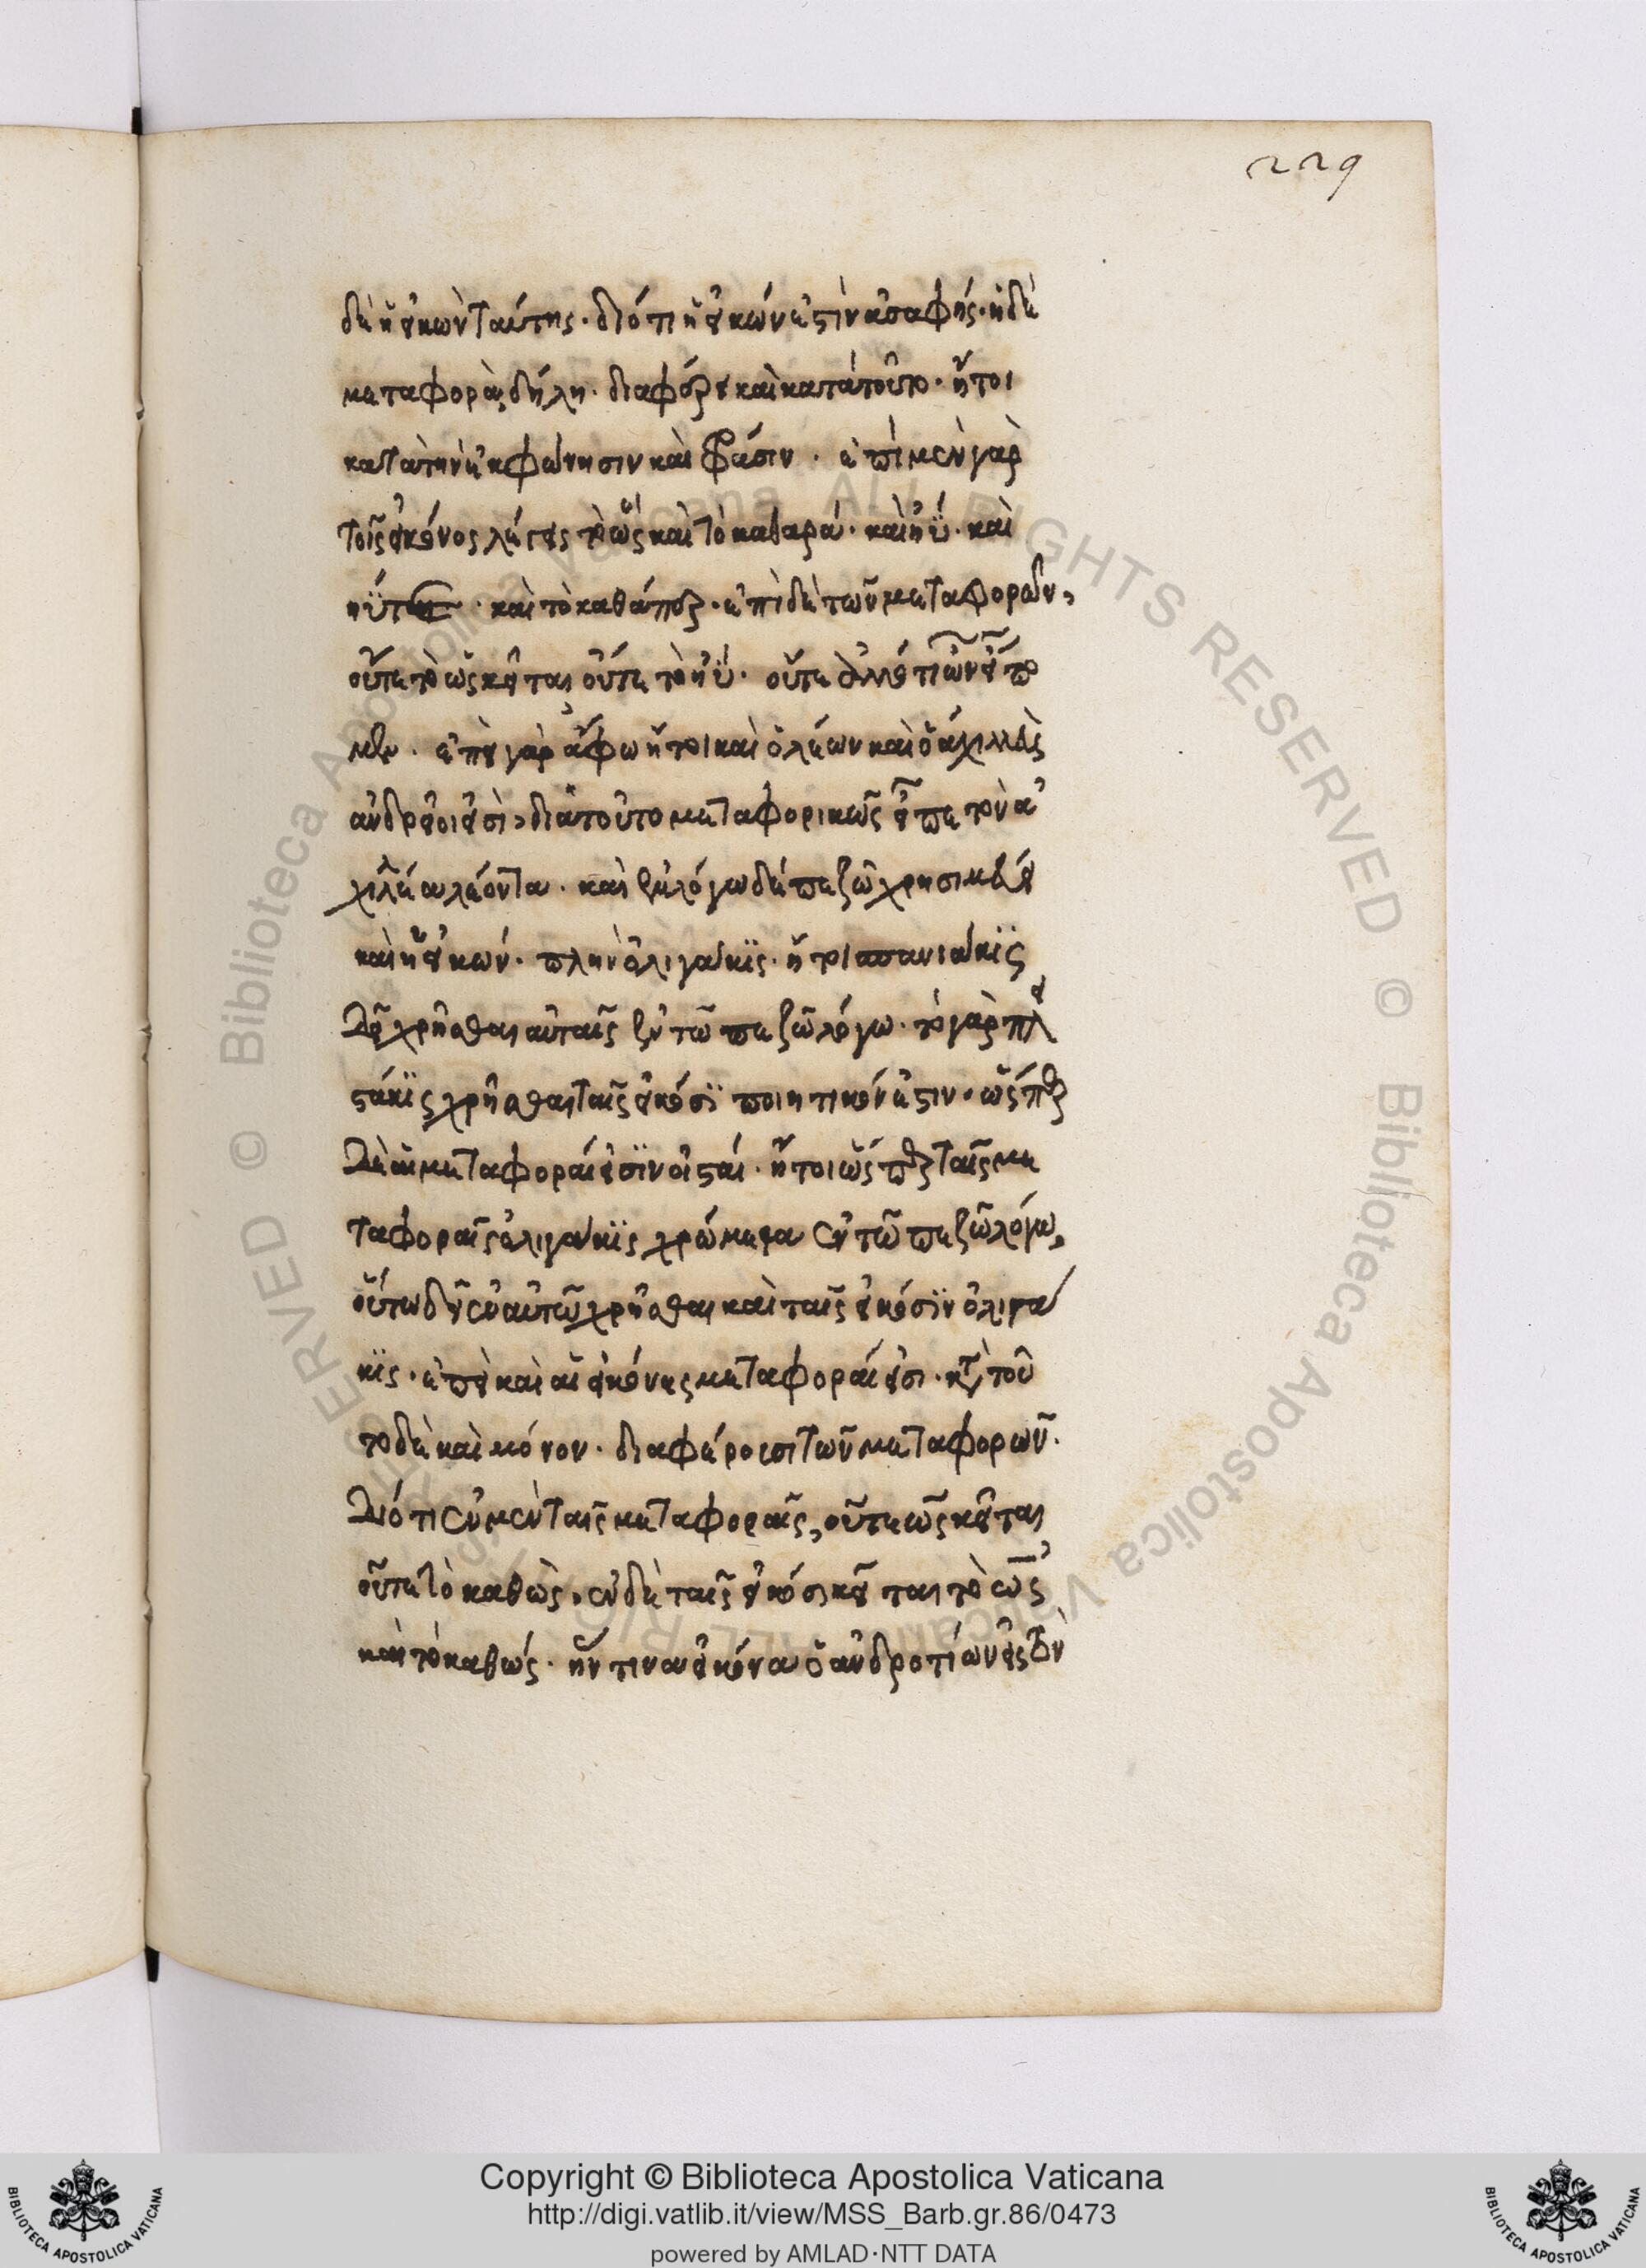 229
δὲ ἡ εἰκὼν ταύτης· διότι ἡ εἰκών ἐστιν ἀσαφής· ἡ δὲ
μεταφορὰ δήλη· διαφέρει καὶ κατὰ τοῦτο· ἤτοι
κατὰ τὴν ἐκφώνησιν καὶ φάσιν· ἐπὶ μὲν γὰρ
τοῖς εἰκόνος λέγεις τὸ ὡς καὶ τὸ καθαρά· καὶ ἠΰ· καὶ
ἠΰτε· καὶ τὸ καθάπερ· ἐπὶ δὲ τῶν μεταφορῶν,
οὔτε τὸ ὡς κεῖται οὔτε τὸ ἠΰ· οὔτε
ἐπεὶ γὰρ ἄμφω ἤτοι καὶ ὁ λέων καὶ ὁ ἀχιλλεὺς
ἀνδρεῖοι εἰσὶ, διὰ τοῦτο μεταφορικῶς εἶπε τὸν ἀ
χιλέα λέοντα· καὶ ἐν λόγω δὲ πεζῶ χρησιμεύει
καὶ ἡ εἰκών· πλὴν ὀλιγάκις· ἤτοι σπανιάκις
δεῖ χρῆσθαι αὐταῖς ἐν τῶ πεζῶ λόγω· τὸ γὰρ πλει
στάκις χρῆσθαι ταῖς εἰκόσι ποιητικόν ἐστιν· ὥσπερ
δὲ αἱ μεταφοραί εἰσιν οἰσταί· ἤτοι ὥσπερ ταῖς με
ταφοραῖς ὀλιγάκις χρώμεθα ἐν τῶ πεζῶ λόγω,
οὕτω δεῖ ἐν αὐτῶ χρῆσθαι καὶ ταῖς εἰκόσιν ὀλιγά
κις· ἐπεὶ καὶ αἱ εἰκόνες μεταφοραί εἰσι· κατὰ τοῦ
το δὲ καὶ μόνον· διαφέρουσι τῶν μεταφορῶν·
διότι ἐν μὲν ταῖς μεταφοραῖς, οὔτε ὡς κεῖται
οὔτε τὸ καθὼς, ἐν δὲ ταῖς εἰκόσι κεῖται τὸ ὡς
καὶ τὸ καθώς· ἥν τινα εἰκόνα ὁ ἀνδροτίων εἰς τὸν
Copyright © Biblioteca Apostolica Vaticana
http://digi.vatlib.it/view/MSS_Barb.gr.86/0473
powered by AMLAD·NTT DATA